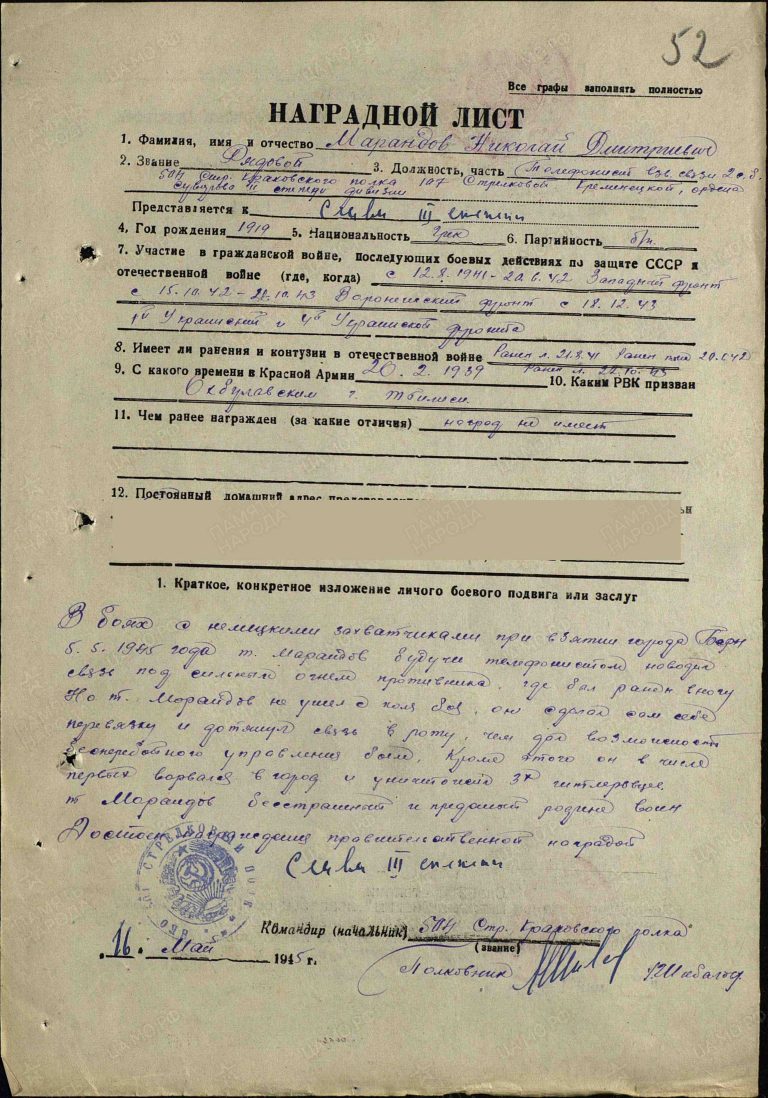 52
Все графы заполнять полностью
НАГРАДНОЙ ЛИСТ
1. Фамилия, имя и отчество Марандов Николай Дмитриевич
2. Звание Рядовой 3. Должность, часть Телефонист взв. связи 2 с.б.
504 стр. Краковского полка 107 Стрелковой Кременецкой, ордена
Суворова II степени дивизии
Представляется к Славы III степени
4. Год рождения 1919 5. Национальность грек 6. Партийность б/п.
7. Участие в гражданской войне, последующих боевых действиях по защите СССР и
отечественной войне (где, когда) с 12.8.1941-20.6.42 Западный фронт
с 15.10.42-20.10.43 Воронежский фронт с 18.12.43
1й Украинский и 4й Украинский фронта
8. Имеет ли ранения и контузии в отечественной войне Ранен л. 21.8.41 Ранен
Ранен л. 43
9. С какого времени в Красной Армии 20.2.1939 10. Каким РВК призван
г. Тбилиси
11. Чем ранее награжден (за какие отличия) наград не имеет
12. Постоянный домашний адрес
1. Краткое, конкретное изложение личого боевого подвига или заслуг
В боях с немецкими захватчиками при взятии города
5.5.1945 года т. Марандов будучи телефонистом наводил
связь под сильным огнем противника, где был ранен в ногу
Но т. Марандов не ушел с поля боя, он сделал сам себе
перевязку и дотянул связь в роту, чем дал возможность
бесперебойного управления боем. Кроме этого он в числе
первых ворвался в город и уничтожил 3х гитлеровцев.
т. Марандов бесстрашный и преданный родине воин
Достоин награждения правительственной наградой
Славы III степени
СТРЕЛКОВЫЙ ПОЛК
НКО
Командир (начальник) 504 Стр. Краковского полка
(звание)
16. Май 1945 г.
Полковник